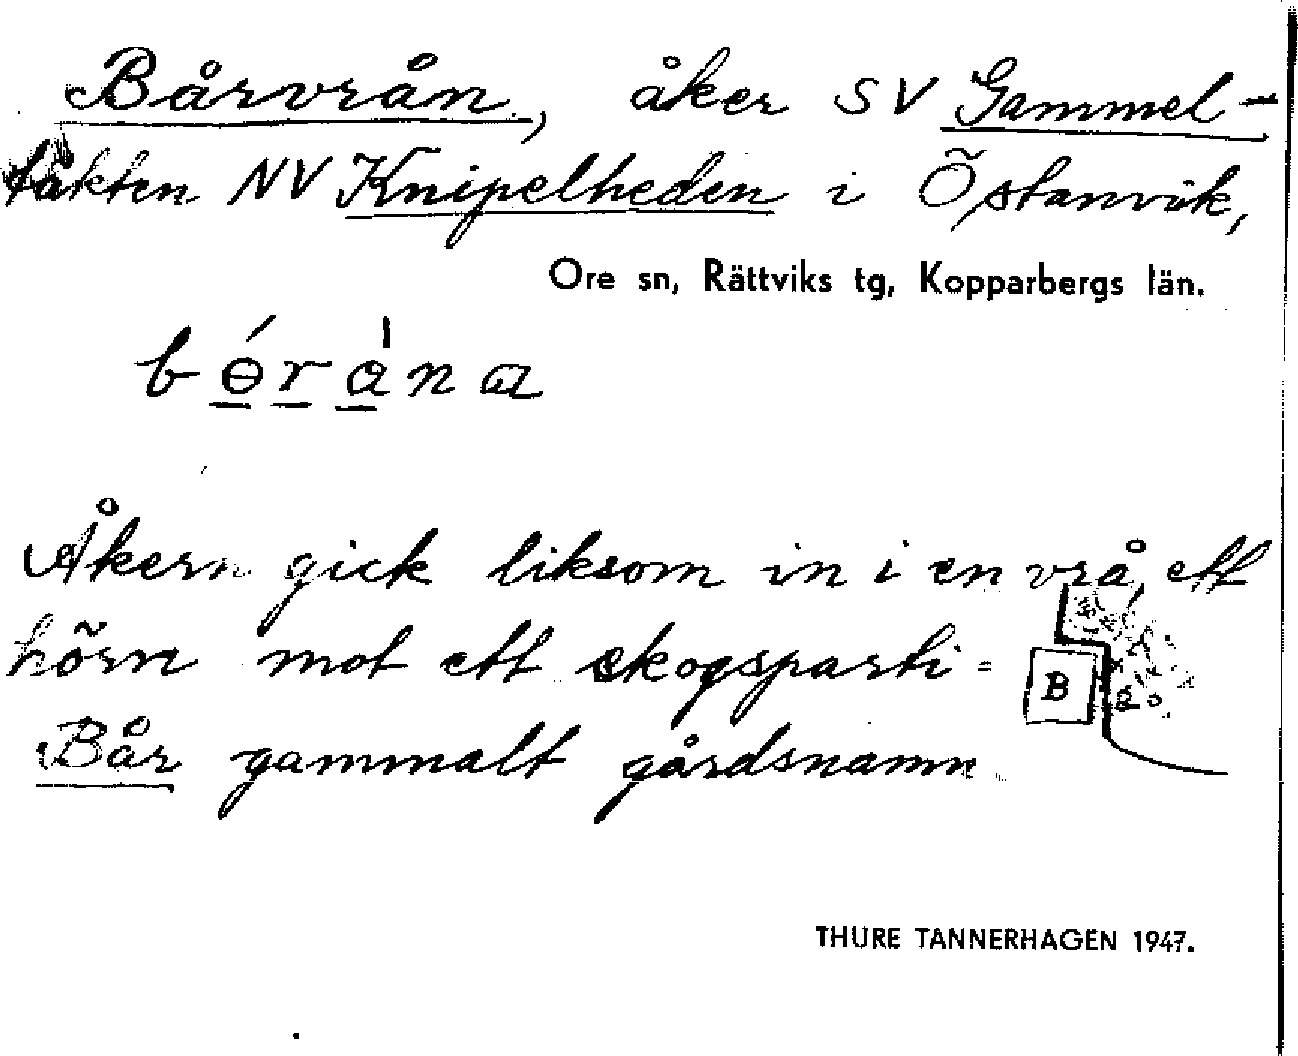 Bårvrån, åker SV Gammel-
täkten NV Knipelheden i Östanvik,
Ore sn, Rättviks tg, Kopparbergs län.
Åkern gick liksom in i en vrå, ett
hörn mot ett skogsparti -
B
Bår gammalt gårdsnamn
THURE TANNERHAGEN 1947.